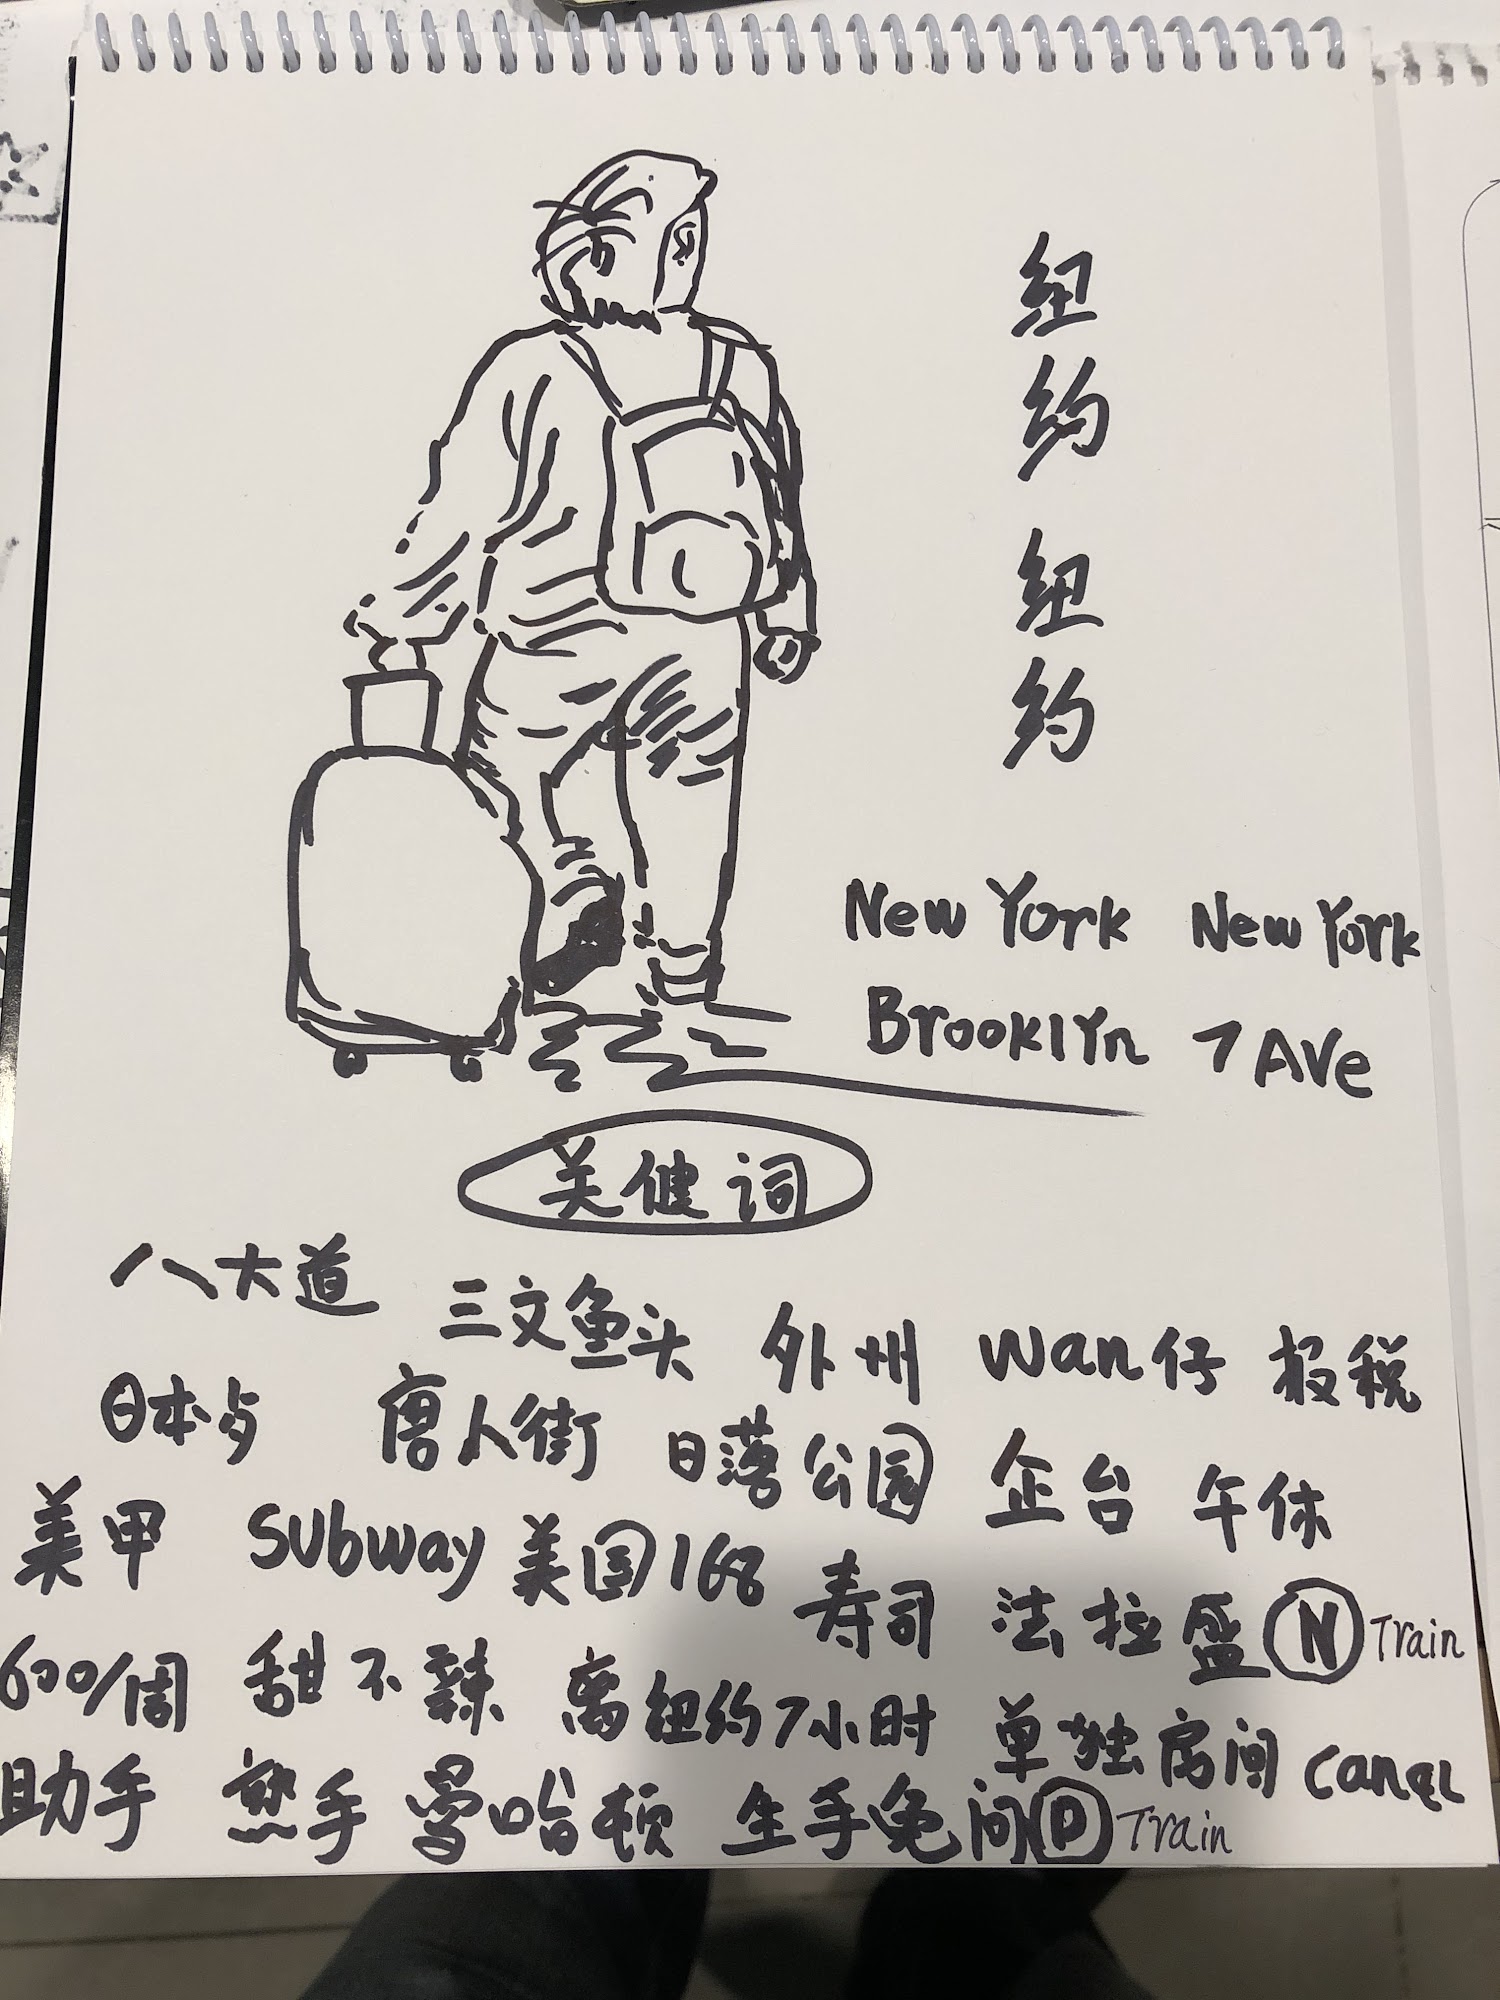 纽约 纽约
New York New York
Brooklyn 7 Ave
关健词
八大道 三文鱼头 外州 wan仔 报税
日本步 唐人街 日落公园 企台 午休
美甲 Subway 美国168 寿司 法拉盛 N Train
600/周 甜不辣 离纽约7小时 单独房间 Canal
助手 熟手 曼哈顿 生手免问 D Train